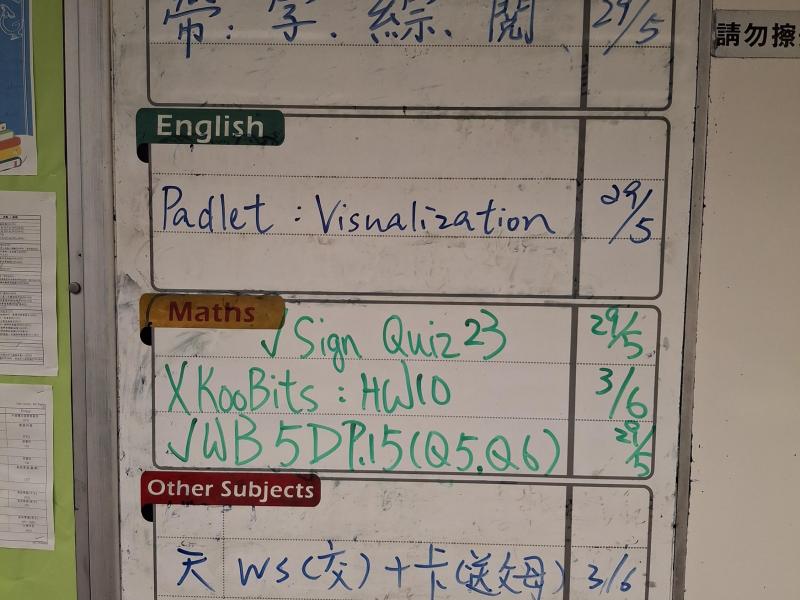 帶：字．綜．閱 29/5
請勿擦
English
Padlet : Visualization 29/5
Maths
√Sign Quiz 23 29/5
X KooBits : HW10 3/6
√WB 5D P.15(Q5.Q6) 29/5
Other Subjects
天 WS(交)+卡(送父母) 3/6